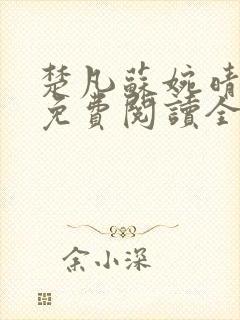 楚凡蘇婉晴
免費閱讀全
余小深